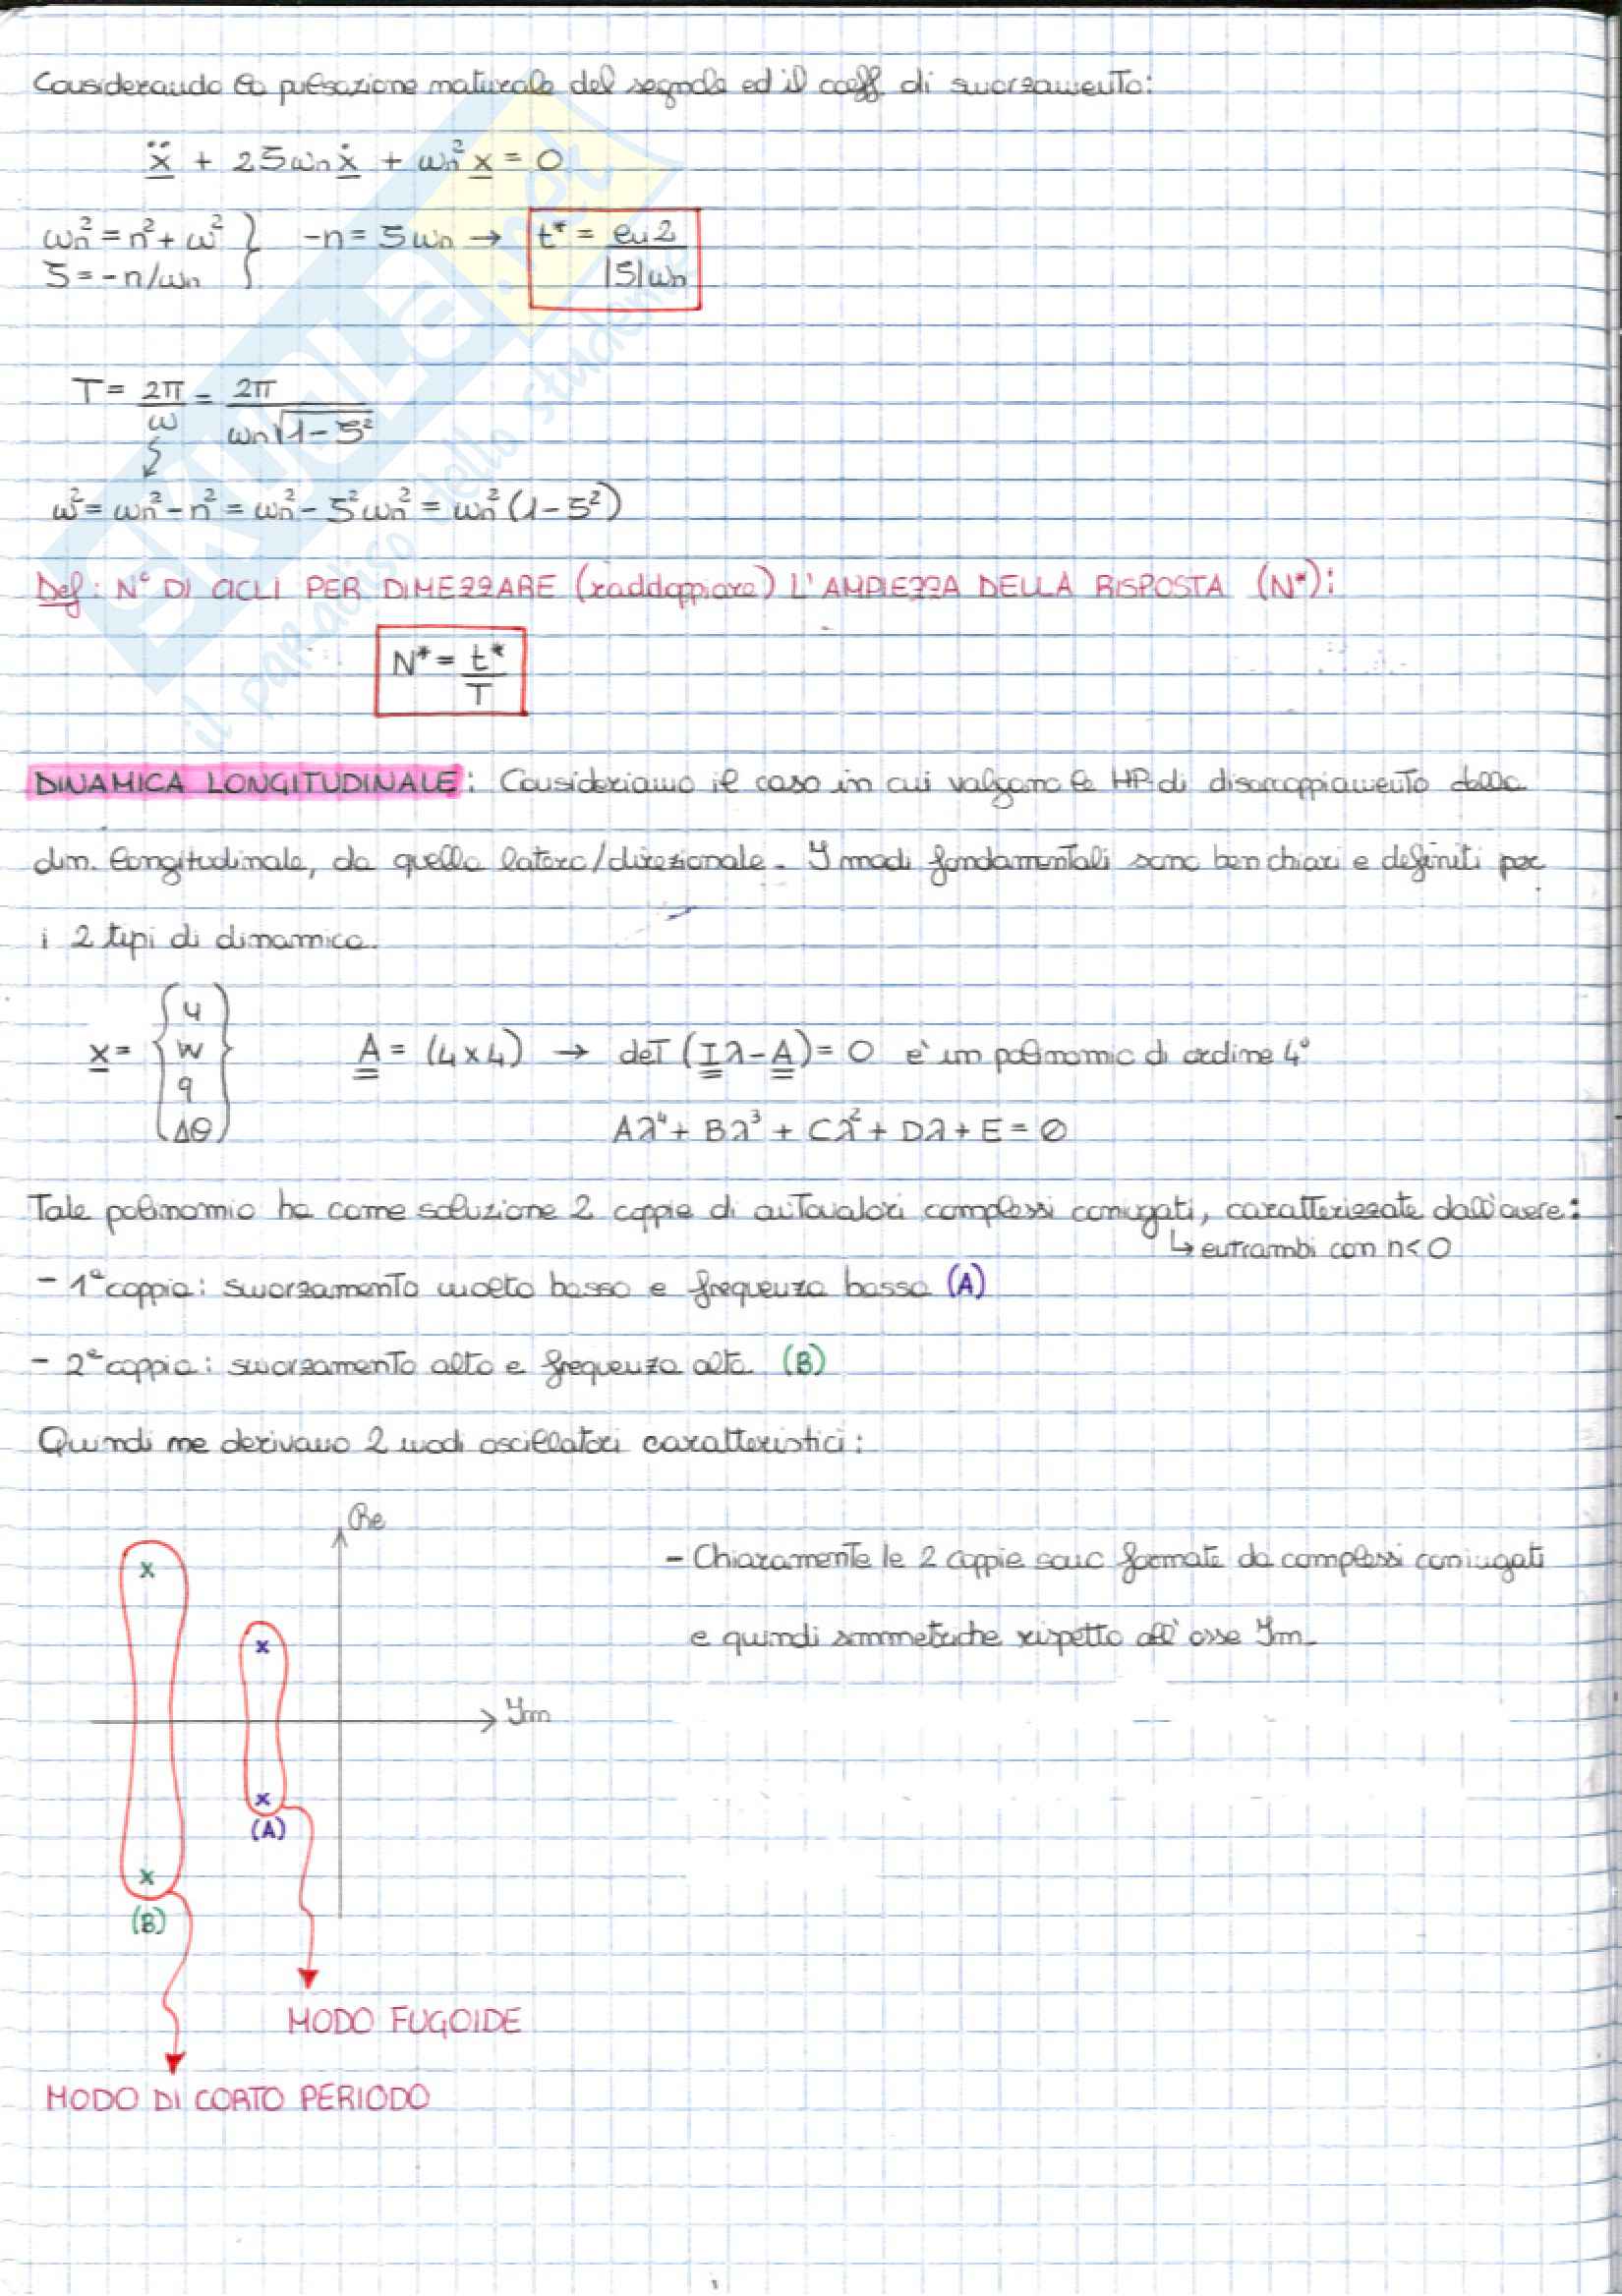 Considerando la pulsazione naturale del segnale ed il coeff. di smorzamento:
ẍ + 2ζωn ẋ + ωn² x = 0
ωn² = n² + ω² } -n = ζωn → t* = ln2 / |ζ|ωn
ζ = -n/ωn
T = 2π/ω = 2π / ωn√1-ζ²
ω² = ωn² - n² = ωn² - ζ²ωn² = ωn² (1-ζ²)
Def: N° DI CICLI PER DIMEZZARE (raddoppiare) L'AMPIEZZA DELLA RISPOSTA (N*):
N* = t*/T
DINAMICA LONGITUDINALE: Consideriamo il caso in cui valgano le HP di disaccoppiamento della
dim. longitudinale, da quella latero/direzionale. I modi fondamentali sono ben chiari e definiti per
i 2 tipi di dinamica.
x = { u w q Δθ } A = (4x4) → det (Iλ-A) = 0 e' un polinomio di ordine 4°
Aλ⁴ + Bλ³ + Cλ² + Dλ + E = 0
Tale polinomio ha come soluzione 2 coppie di autovalori complessi coniugati, caratterizzate dall'avere:
↳ entrambi con n<0
- 1ª coppia: smorzamento molto basso e frequenza bassa (A)
- 2ª coppia: smorzamento alto e frequenza alta (B)
Quindi ne derivano 2 modi oscillatori caratteristici:
Re
- Chiaramente le 2 coppie sono formate da complessi coniugati
e quindi simmetriche rispetto all'asse Im.
Im
(A)
(B)
MODO FUGOIDE
MODO DI CORTO PERIODO
SKUOLA.net
il paradiso dello studente